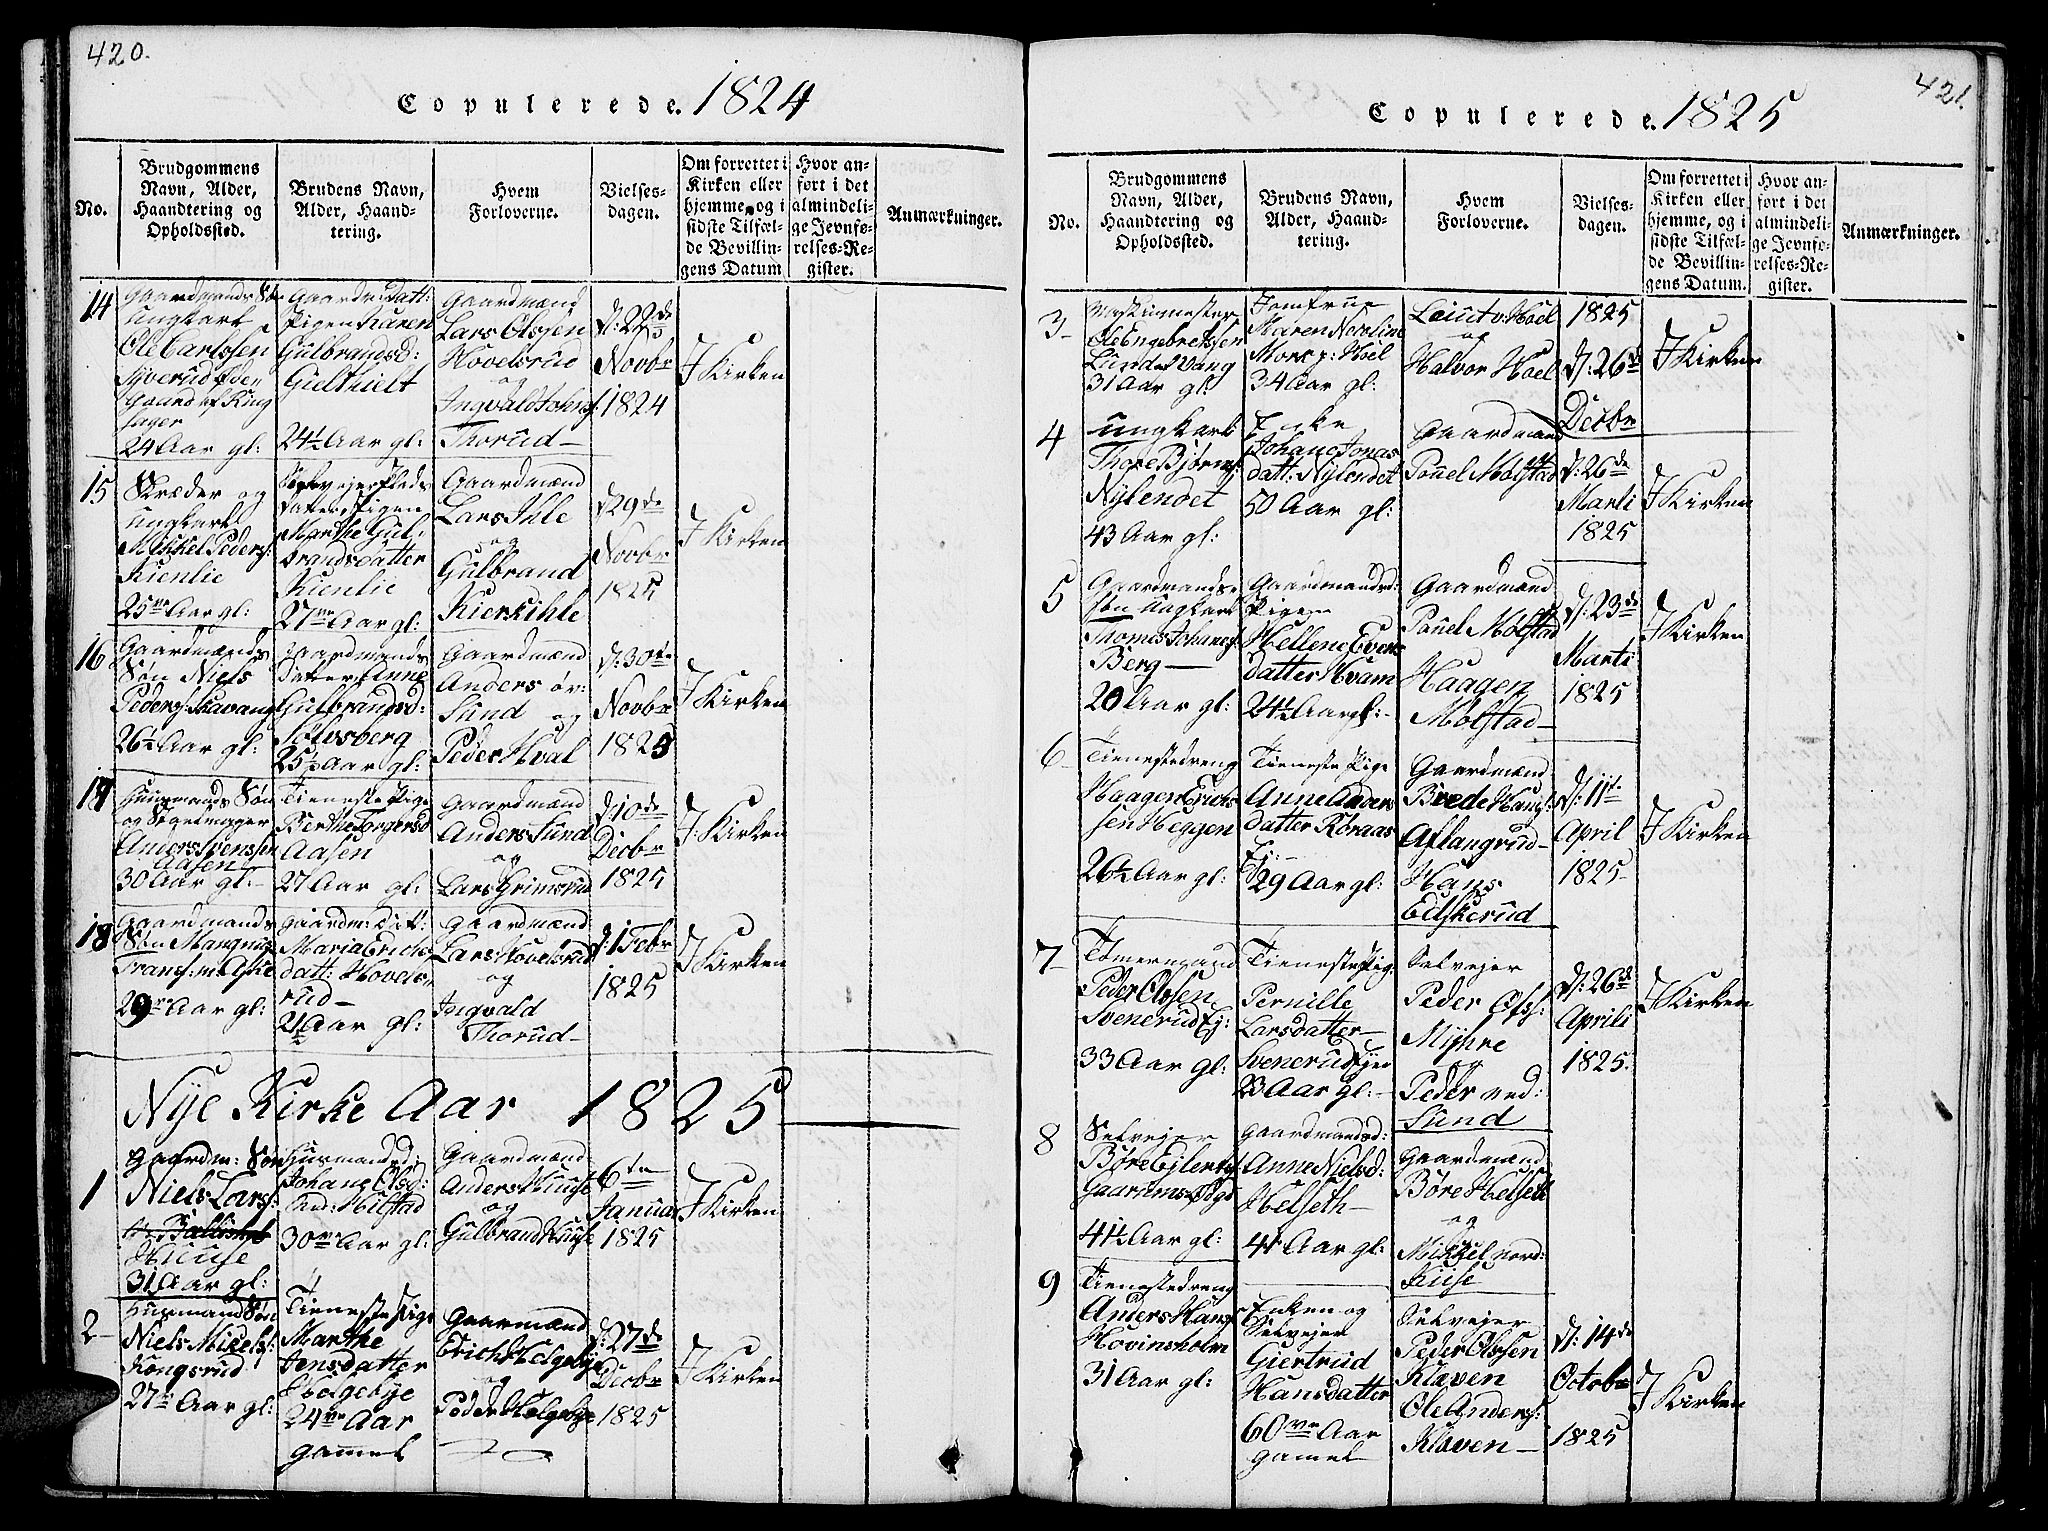 420.
Copulerede. 1824
No.
Brudgommens
Navn, Alder,
Haandtering og
Opholdssted.
Brudens Navn,
Alder, Haand-
tering.
Hvem
Forloverne.
Vielses-
dagen.
Om forrettet i
Kirken eller
hjemme, og i
sidste Tilfæl-
de Bevillin-
gens Datum
Hvor an-
ført i det
almindeli-
ge Jevnfø-
relses-Re-
gister.
Anmærkninger.
14
Gaardmands Søn
Ungkarl
Ole Carlssen
24 Aar gl:
Pigen Karen
Gulbrandsd:
24½ Aar gl:
Gaardmænd
Lars Olssen
Hovelsrud
og
Ingvald Johns:
Thorud
d: 22de
Novbr
1824
I Kirken
15
Skræder og
Ungkarl
Mikkel Peders:
Kienlie
25ve Aar gl:
Datter, Pigen
Marthe Gul-
brandsdatter
Kienlie
27ve Aar gl:
Gaardmænd
Lars Ihle
og
Gulbrand
Kierkihle
d 29de
Novbr
1825
I Kirken
16
Gaardmands
Søn Niels
Peders: Skavang
26½ Aar gl:
Gaardmands
Datter Anne
Gulbrandsd:
Sølvsberg
25½ Aar gl:
Gaardmænd
Anders øv:
Sund og
Peder Hval
d: 30te
Novbr
1825
I Kirken
17
Huusmands Søn
Anders Svenssen
Aasen
30 Aar gl:
Tieneste Pige
Berthe Torgersd
Aasen
27 Aar gl:
Gaardmænd
Anders Sund
og
Lars Grimsrud
d 10de
Decbr
1825
I Kirken
18
Gaardmands
Søn Mangnus
29ve Aar gl:
Gaardm: Dat:
Maria Erichs
datt: Hovels-
rud
21 Aar gl:
Gaardmænd
Lars Hovelsrud
og
Ingvald
Thorud
d: 1 Febr
1825
I Kirken
Nye Kirke Aar 1825
1
Gaardm: Søn
Niels Lars:
Huuse
31 Aar gl:
Husmandsd:
Johane Olsd:
30ve Aar gl:
Gaardmænd
Anders Huuse
og
Gulbrand Huuse
6te
Januar
1825
I Kirken
2
Husmand Søn
Niels Mikels:
Kongsrud
27ve Aar gl:
Tieneste Pige
Marthe
Jensdatter
Helgebye
24ve Aar
gammel
Gaarmænd
Erich Helgebye
og
Peder Helgebye
d: 27de
Decbr
1825
I Kirken
421.
Copulerede. 1825
No.
Brudgommens
Navn, Alder,
Haandtering og
Opholdssted.
Brudens Navn,
Alder, Haand-
tering.
Hvem
Forloverne.
Vielses-
dagen.
Om forrettet i
Kirken eller
hjemme, og i
sidste Tilfæl-
de Bevillin-
gens Datum.
Hvor an-
ført i det
almindeli-
ge Jevnfø-
relses-Re-
gister.
Anmærkninger.
3
Ole Engebretssen
Lunde Vang
31 Aar gl:
Jomfrue
Maren Nicoline
Hoel
34 Aar gl:
Leiut v: Hoel
og
Halvor Hoel
1825
d: 26de
Decbr
I Kirken
4
Ungkarl
Thore Bjørns:
Nylendet
43 Aar gl:
Enke
Johane Jonas
datt: Nylendet
50 Aar gl:
Gaardmænd
Pouel Molstad
d: 26de
Marti
1825
I Kirken
5
Gaardmands-
søn Ungkarl
Thomas Johanes:
Berg
20 Aar gl:
Gaardmandsd:
Pigen
Hellene Evens
datter Hvam
24½ Aar gl:
Gaardmænd
Pouel Molstad
Haagen
Molstad
d: 23de
Marti
1825
I Kirken
6
Tienestedreng
Haagen Erich
sen Heggen
26½ Aar gl:
Tieneste Pige
Anne Anders
datter Røraas
Ej:
29 Aar gl:
Gaardmænd
Brede Hans:
Aflangrud
Hans
Eelskerud
d: 11te
April
1825
I Kirken
7
Tømermand
Peder Olssen
Svenerud Ej:
33 Aar gl:
Tieneste Pige
Pernille
Larsdatter
Svenerud Ejen
23 Aar gl:
Selvejer
Peder Ols:
Myhre
og
Peder ned:
Sund
d: 26de
Aprili
1825.
I Kirken
8
Selvejer
Børe Ejlerts:
41½ Aar gl:
Gaardmandsd:
Anne Nielsd:
Helseth
41 Aar gl:
Gaardmænd
Børe Helseth
og
Mikkel nord:
Kise
9
Tienestedreng
Anders Hans:
Hovinsholm
31 Aar gl:
Enken og
Selvejer
Giertrud
Hansdatter
60ve Aar
gamel
Selvejer
Peder Olssen
Klæven
Ole Anders:
Klæven
d: 14de
Octobr
1825
I Kirken